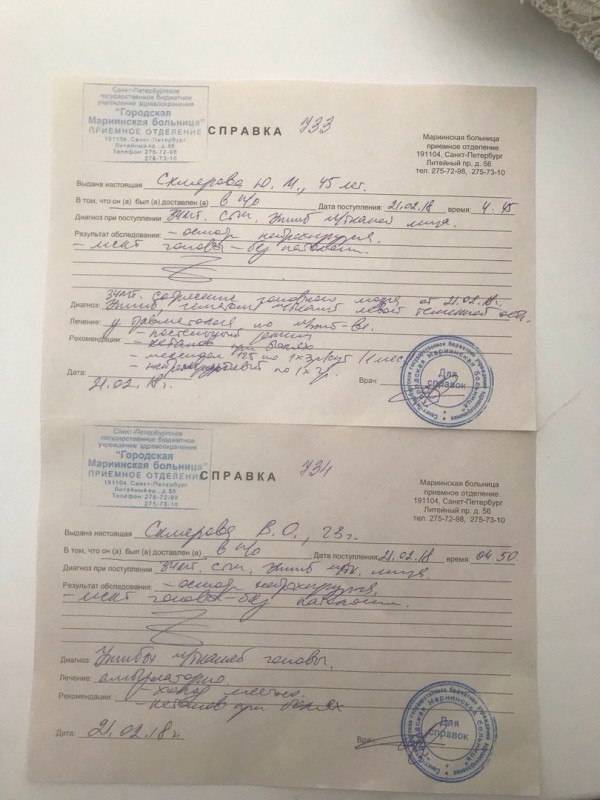 Санкт-Петербургское
государственное бюджетное
учреждение здравоохранения
"Городская
Мариинская больница"
ПРИЕМНОЕ ОТДЕЛЕНИЕ
191104, Санкт-Петербург
Литейный пр. д. 56
Телефон 275-72-98
275-73-10
СПРАВКА 733
Мариинская больница
приемное отделение
191104, Санкт-Петербург
Литейный пр. д. 56
тел. 275-72-98, 275-73-10
Выдана настоящая Ю. М., 45 лет.
В том, что он (а) был (а) доставлен (а) в п/о Дата поступления: 21.02.18 время: 4.45
Диагноз при поступлении ЗЧМТ. СГМ. Ушиб м/тканей лица.
Результат обследования: - осмотр нейрохирурга,
- МСКТ головы - без патологии
ЗЧМТ. Сотрясение головного мозга от 21.02.18г.
Диагноз: Ушиб м/тканей левой теменной обл.
Лечение: у травматолога по м/жит-ва.
Рекомендации: - постельный режим
- кетанов при болях
- по 1х3р/сут 1 мес
- по 1х3р.
Дата: 21.02.18г. Врач:
Для
справок
Санкт-Петербургское
государственное бюджетное
учреждение здравоохранения
"Городская
Мариинская больница"
ПРИЕМНОЕ ОТДЕЛЕНИЕ
191104, Санкт-Петербург
Литейный пр. д. 56
Телефон 275-72-98
275-73-10
СПРАВКА 734
Мариинская больница
приемное отделение
191104, Санкт-Петербург
Литейный пр. д. 56
тел. 275-72-98, 275-73-10
Выдана настоящая В. О.,
В том, что он (а) был (а) доставлен (а) в п/о Дата поступления: 21.02.18 время: 04.50
Диагноз при поступлении ЗЧМТ. СГМ, Ушиб м/тк. лица.
Результат обследования: - осмотр нейрохирурга,
- МСКТ головы - без патологии.
Диагноз: Ушибы м/тканей головы.
Лечение: амбулаторно
Рекомендации: - холод местно.
- кетанов при болях
Дата: 21.02.18г. Врач:
Для
справок